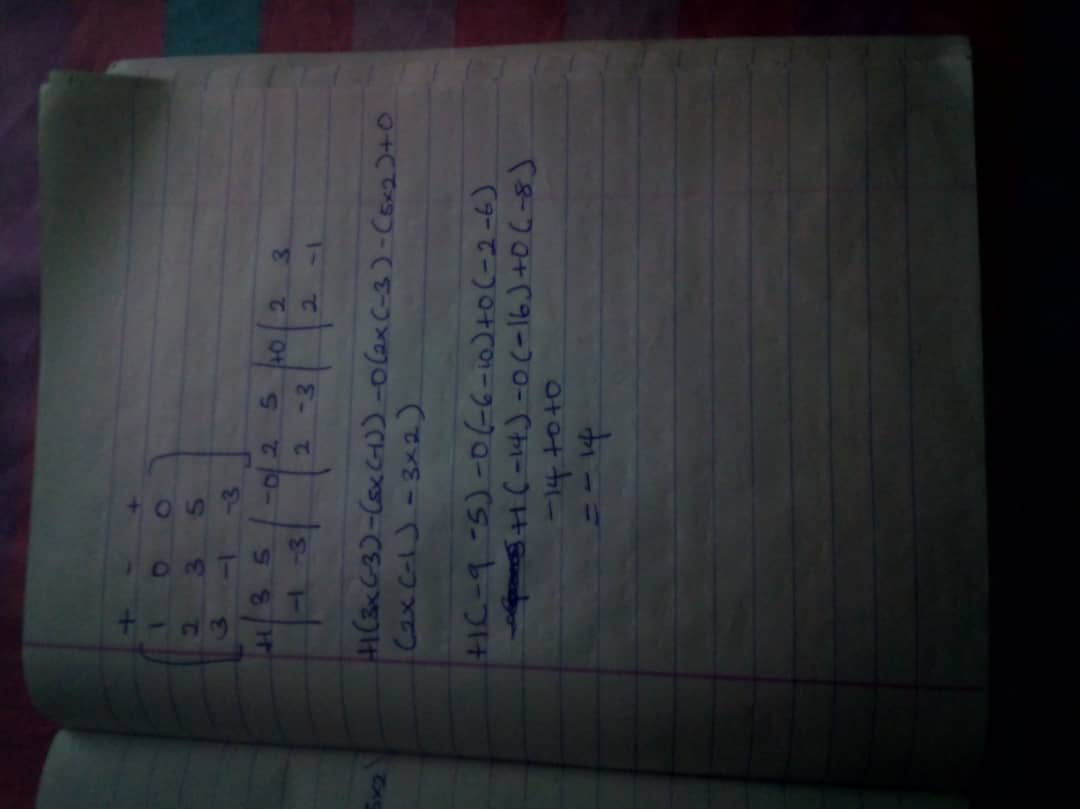 + - +
[ 1 0 0 ]
2 3 5
3 -1 -3
+1 | 3 5 | -0 | 2 5 | +0 | 2 3
| -1 -3 | | 2 -3 | | 2 -1
+1(3x(-3)-(5x(-1)) -0(2x(-3)-(5x2)+0
(2x(-1) - 3x2)
+1(-9 -5) -0(-6-10)+0(-2-6)
+1(-14) -0(-16)+0(-8)
-14 +0+0
= -14
5x2)